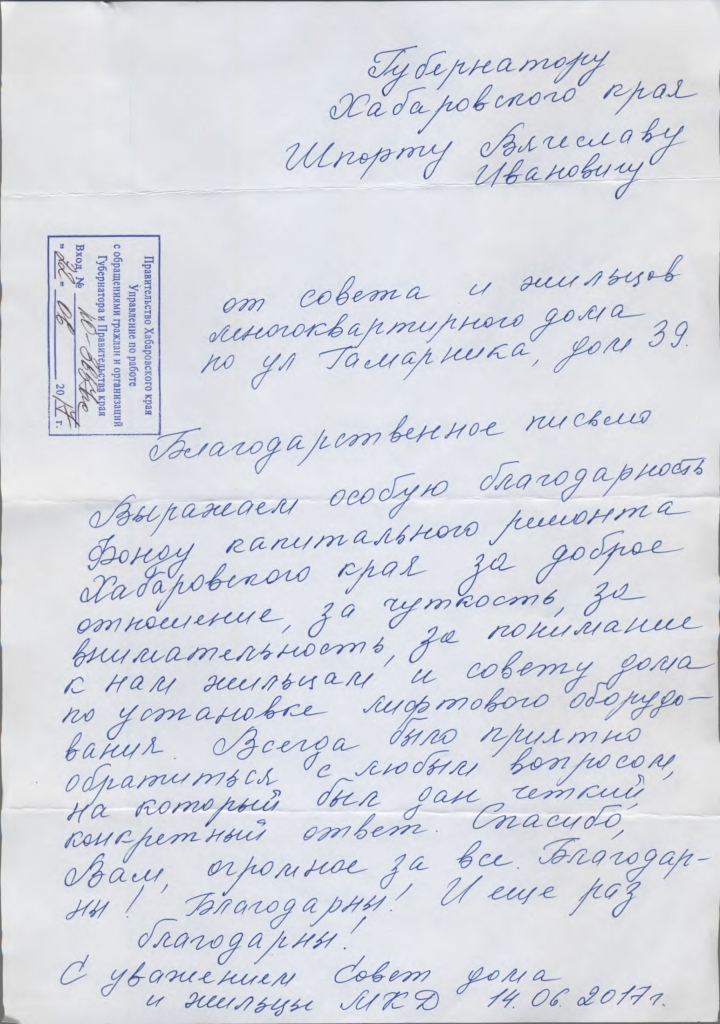 Губернатору
Хабаровского края
Шпорту Вячеславу
Ивановичу
Правительство Хабаровского края
Управление по работе
с обращениями граждан и организаций
Губернатора и Правительства края
Вход. №
"22" 06 2017 г.
от совета и жильцов
многоквартирного дома
по ул Гамарника, дом 39.
Благодарственное письмо
Выражаем особую благодарность
Фонду капитального ремонта
Хабаровского края за доброе
отношение, за чуткость, за
внимательность, за понимание
к нам жильцам и совету дома
по установке лифтового оборудо-
вания. Всегда было приятно
обратиться с любым вопросом,
на который был дан четкий,
конкретный ответ. Спасибо,
Вам, огромное за все. Благодар-
ны! Благодарны! И еще раз
благодарны!
С уважением Совет дома
и жильцы МКД 14.06.2017г.